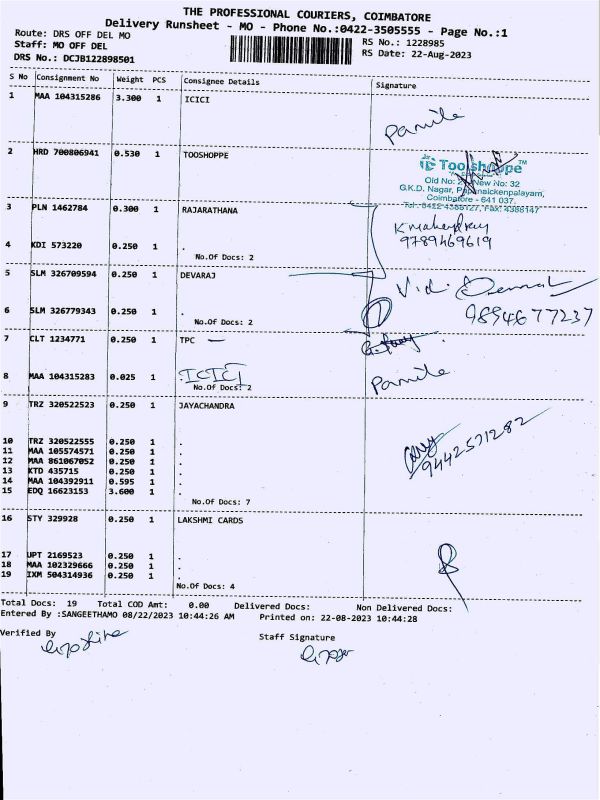 THE PROFESSIONAL COURIERS, COIMBATORE
Delivery Runsheet - MO - Phone No.:0422-3505555 - Page No.:1
Route: DRS OFF DEL MO
Staff: MO OFF DEL
DRS No.: DCJB122898501
RS No.: 1228985
RS Date: 22-Aug-2023
S No Consignment No Weight PCS Consignee Details Signature
1 MAA 104315286 3.300 1 ICICI
Pamila
2 HRD 700806941 0.530 1 TOOSHOPPE
Tooshoppe™
Old No: New No: 32
G.K.D. Nagar, Pappanaickenpalayam,
Coimbatore - 641 037.
Tel: 0422-4388127, Fax: 4388147
3 PLN 1462784 0.300 1 RAJARATHANA
9789469619
4 KDI 573220 0.250 1 .
No.Of Docs: 2
5 SLM 326709594 0.250 1 DEVARAJ
6 SLM 326779343 0.250 1 .
9894677237
No.Of Docs: 2
7 CLT 1234771 0.250 1 TPC
8 MAA 104315283 0.025 1 . ICICI
No.Of Docs: 2
Pamila
9 TRZ 320522523 0.250 1 JAYACHANDRA
9442571282
10 TRZ 320522555 0.250 1 .
11 MAA 105574571 0.250 1 .
12 MAA 861067052 0.250 1 .
13 KTD 435715 0.250 1 .
14 MAA 104392911 0.595 1 .
15 EDQ 16623153 3.600 1 .
No.Of Docs: 7
16 STY 329928 0.250 1 LAKSHMI CARDS
17 UPT 2169523 0.250 1 .
18 MAA 102329666 0.250 1 .
19 IXM 504314936 0.250 1 .
No.Of Docs: 4
Total Docs: 19 Total COD Amt: 0.00 Delivered Docs: Non Delivered Docs:
Entered By :SANGEETHAMO 08/22/2023 10:44:26 AM Printed on: 22-08-2023 10:44:28
Verified By Staff Signature